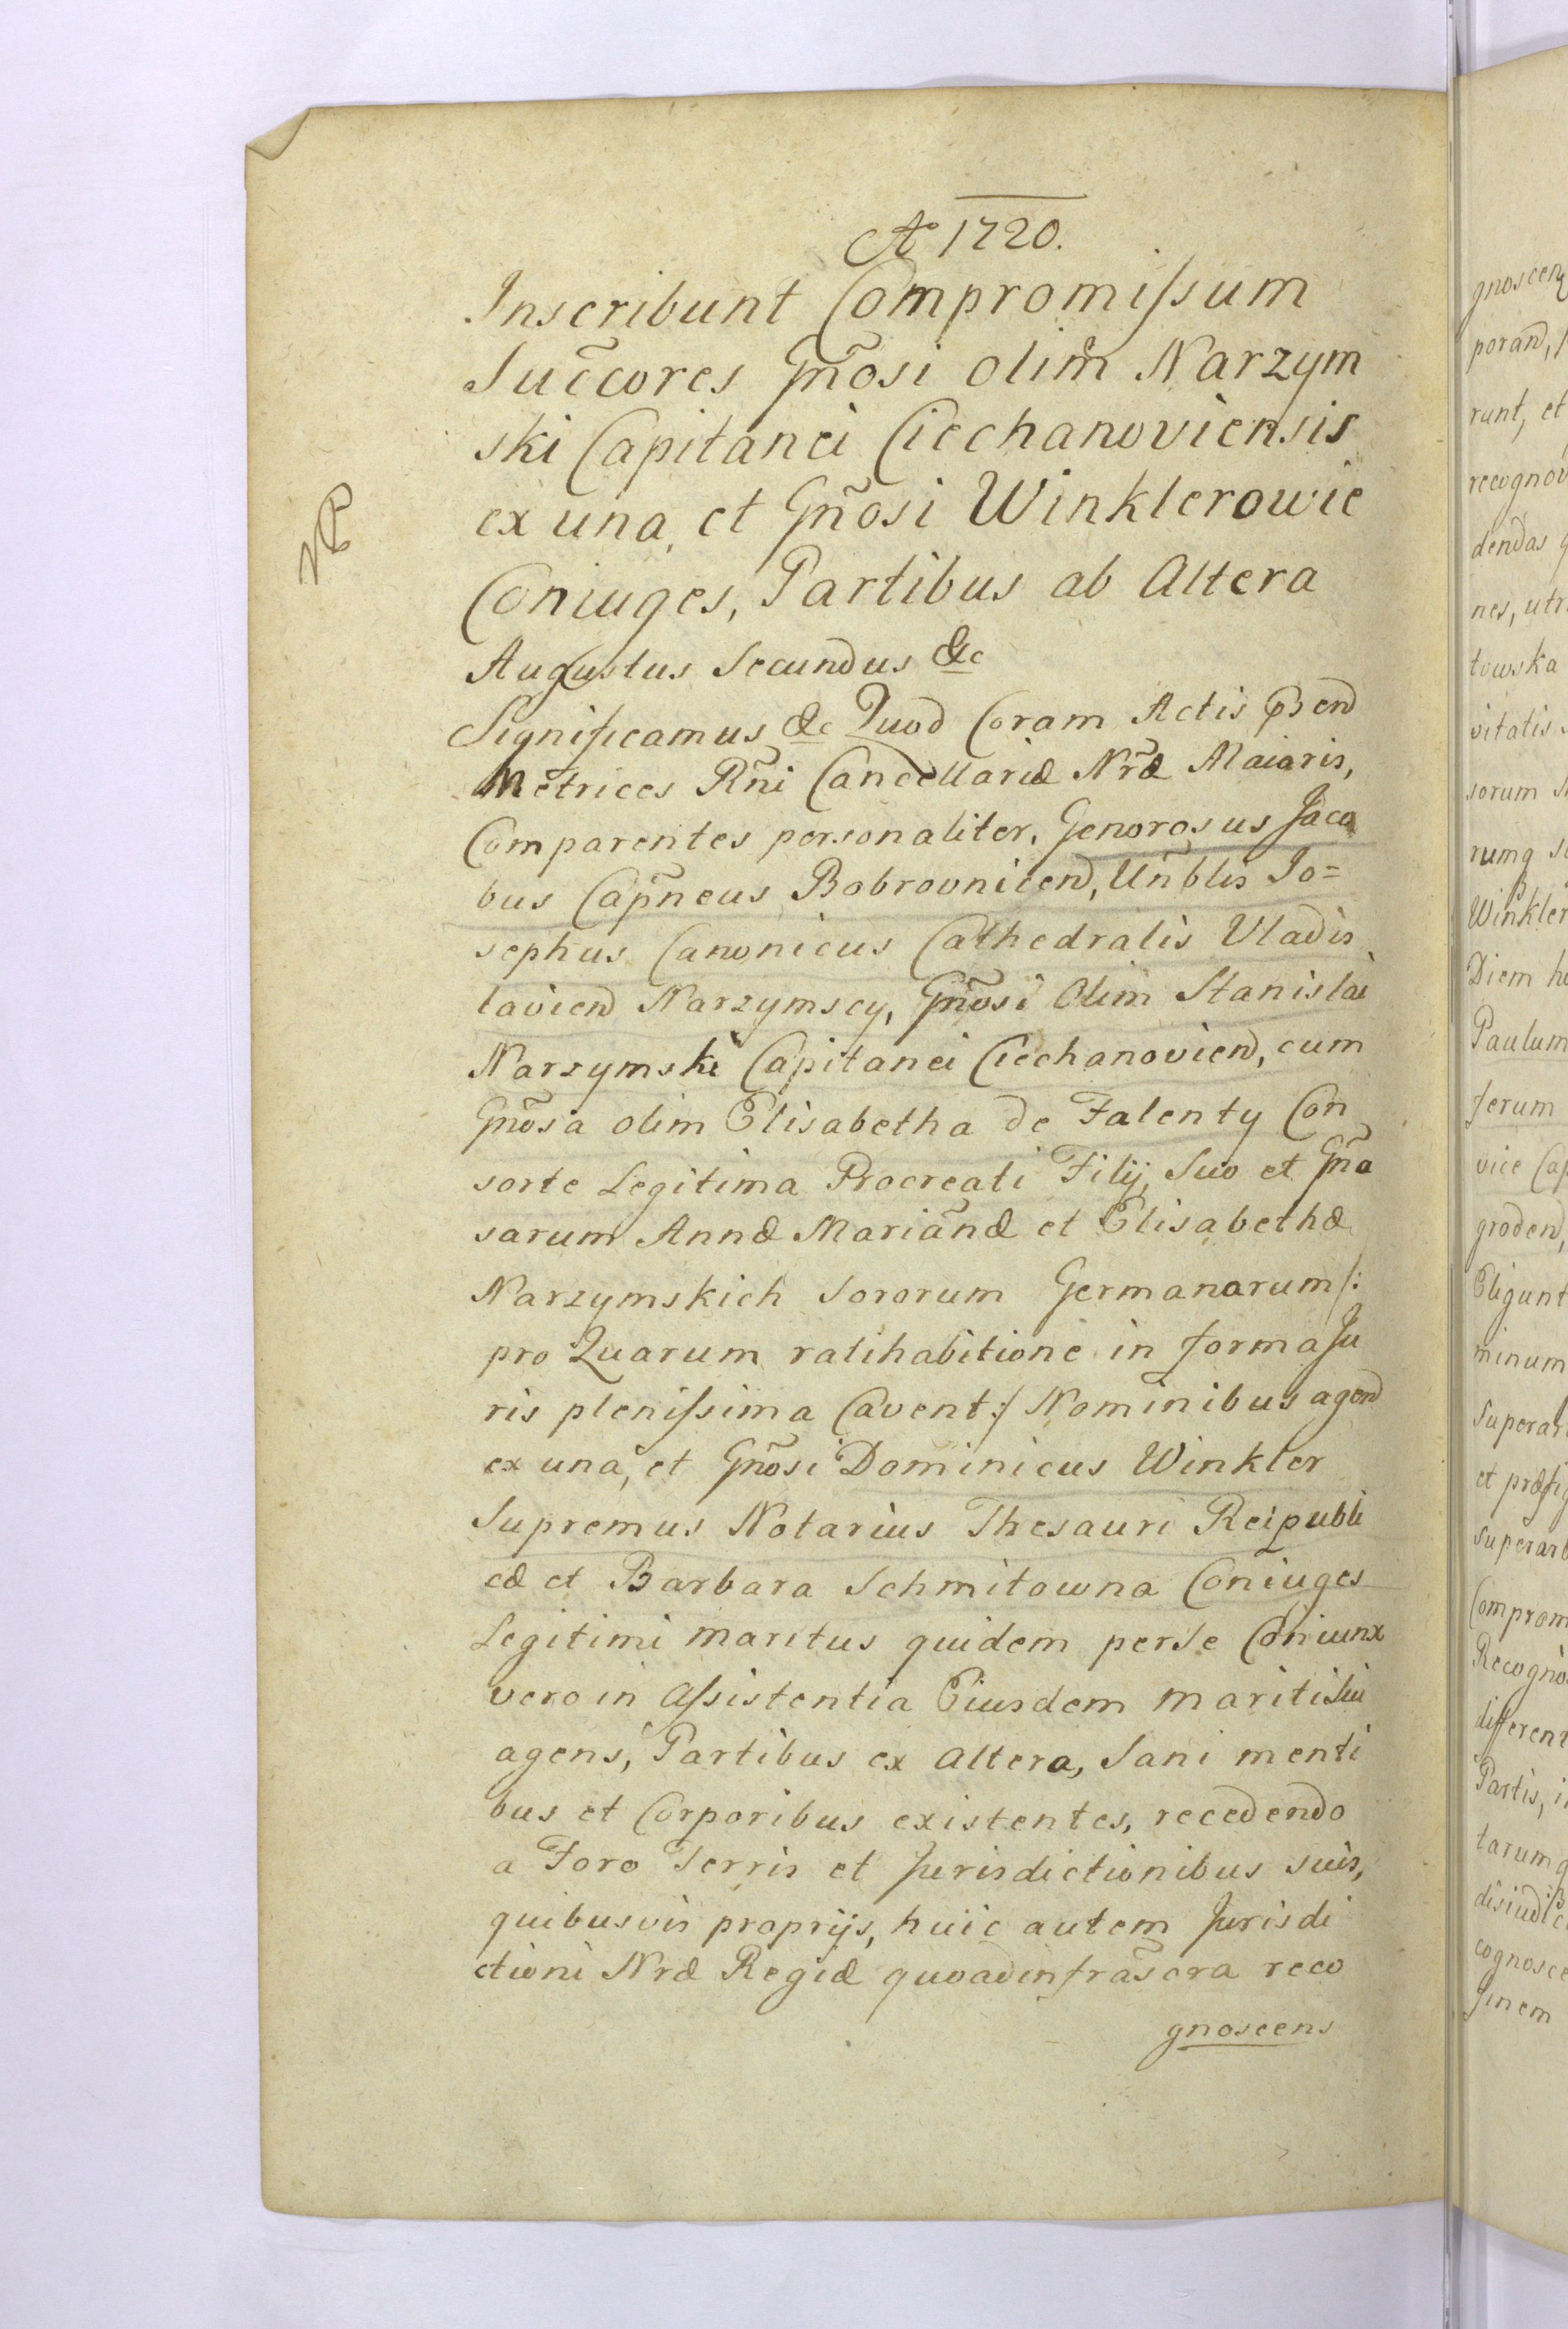 Aº 1720.
Inscribunt Compromissum
Succ̃ores Gñosi olim Narzym
ski Capitanei Ciechanoviensis
ex una, et Gñosi Winklerowie
Coniuges, Partibus ab Altera
Augustus Secundus &c
Significamus &c Quod Coram Actis
Metrices Rñi Cancellariæ Nrã Maioris,
Comparentes personaliter, Generosus Jaco
bus Capñeus Bobrovnicen, Uñblis Jo=
sephus Canonicus Cathedralis Vladis
lavien Narzymscy, Gñosi Olim Stanislai
Narzymski Capitanei Ciechanovien, cum
Gñosa olim Elisabetha de Falenty Con
sorte Legitima Procreati Filij, Suo et Gña
sarum Annæ Mariañæ et Elisabethæ
Narzymskich Sororum Germanarum /:
pro Quarum ratihabitione in forma Ju
ris plenissima Cavent :/ Nominibus agen
ex una, et Gñosi Dominicus Winkler
Supremus Notarius Thesauri Reipubli
cæ et Barbara Schmitowna Coniuges
Legitimi maritus quidem per Se Coniunx
vero in Assistentia Eiusdem mariti Sui
agens, Partibus ex Altera, Sani menti
bus et Corporibus existentes, recedendo
a Foro Terris et Jurisdictionibus suis,
quibusvis proprijs, huic autem Jurisdi
ctioni Nræ Regiæ quoad infrascra reco
gnoscens
gnoscen
poran,
runt, et
recognov
dendas
nes, utr
towska
vitatis
sorum
rumq
Winkler
Diem
Paulum
ferum
vice Cap
groden,
Eligunt
minum
Superar
et præfi
superarb
Comprom
Recogno
different
Partis,
tarumq
disiudic
cognosce
finem